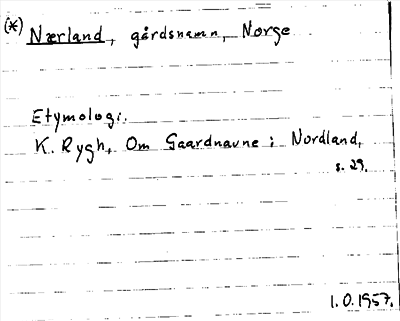 (*) Nærland, gårdsnamn, Norge
Etymologi.
K. Rygh, Om Gaardnavne i Nordland,
s. 29.
I.O. 1957.